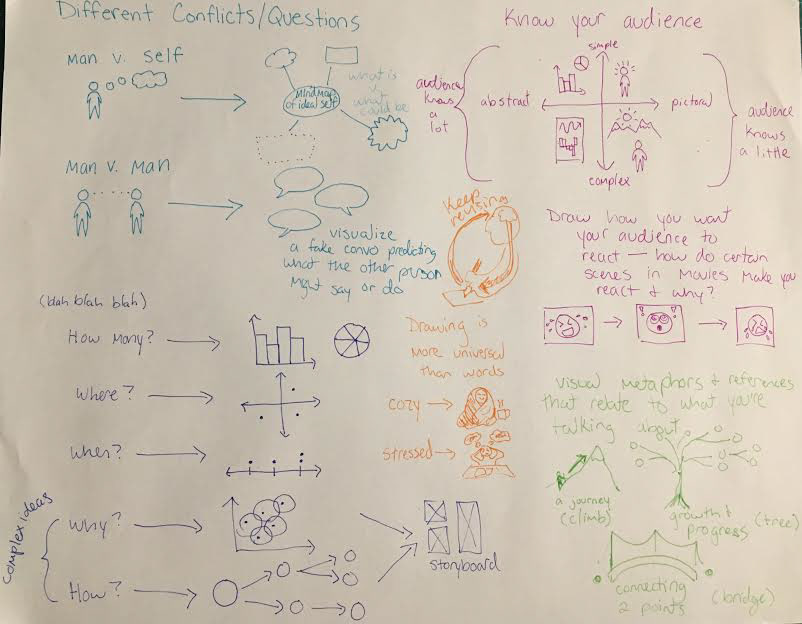 Different Conflicts/Questions
Man v. self
Mind map
of ideal self
what is
v
what
could be
Man v. Man
visualize
a fake convo predicting
what the other person
might say or do
(blah blah blah)
How many?
Where?
When?
complex ideas
Why?
How?
storyboard
Keep
revising
Drawing is
more universal
than words
cozy
stressed
Know your audience
audience
knows
a
lot
simple
abstract
pictoral
complex
audience
knows
a little
Draw how you want
your audience to
react — how do certain
scenes in movies make you
react & why?
visual metaphors & references
that relate to what you're
talking about
a journey
(climb)
growth &
progress (tree)
connecting
2 points (bridge)